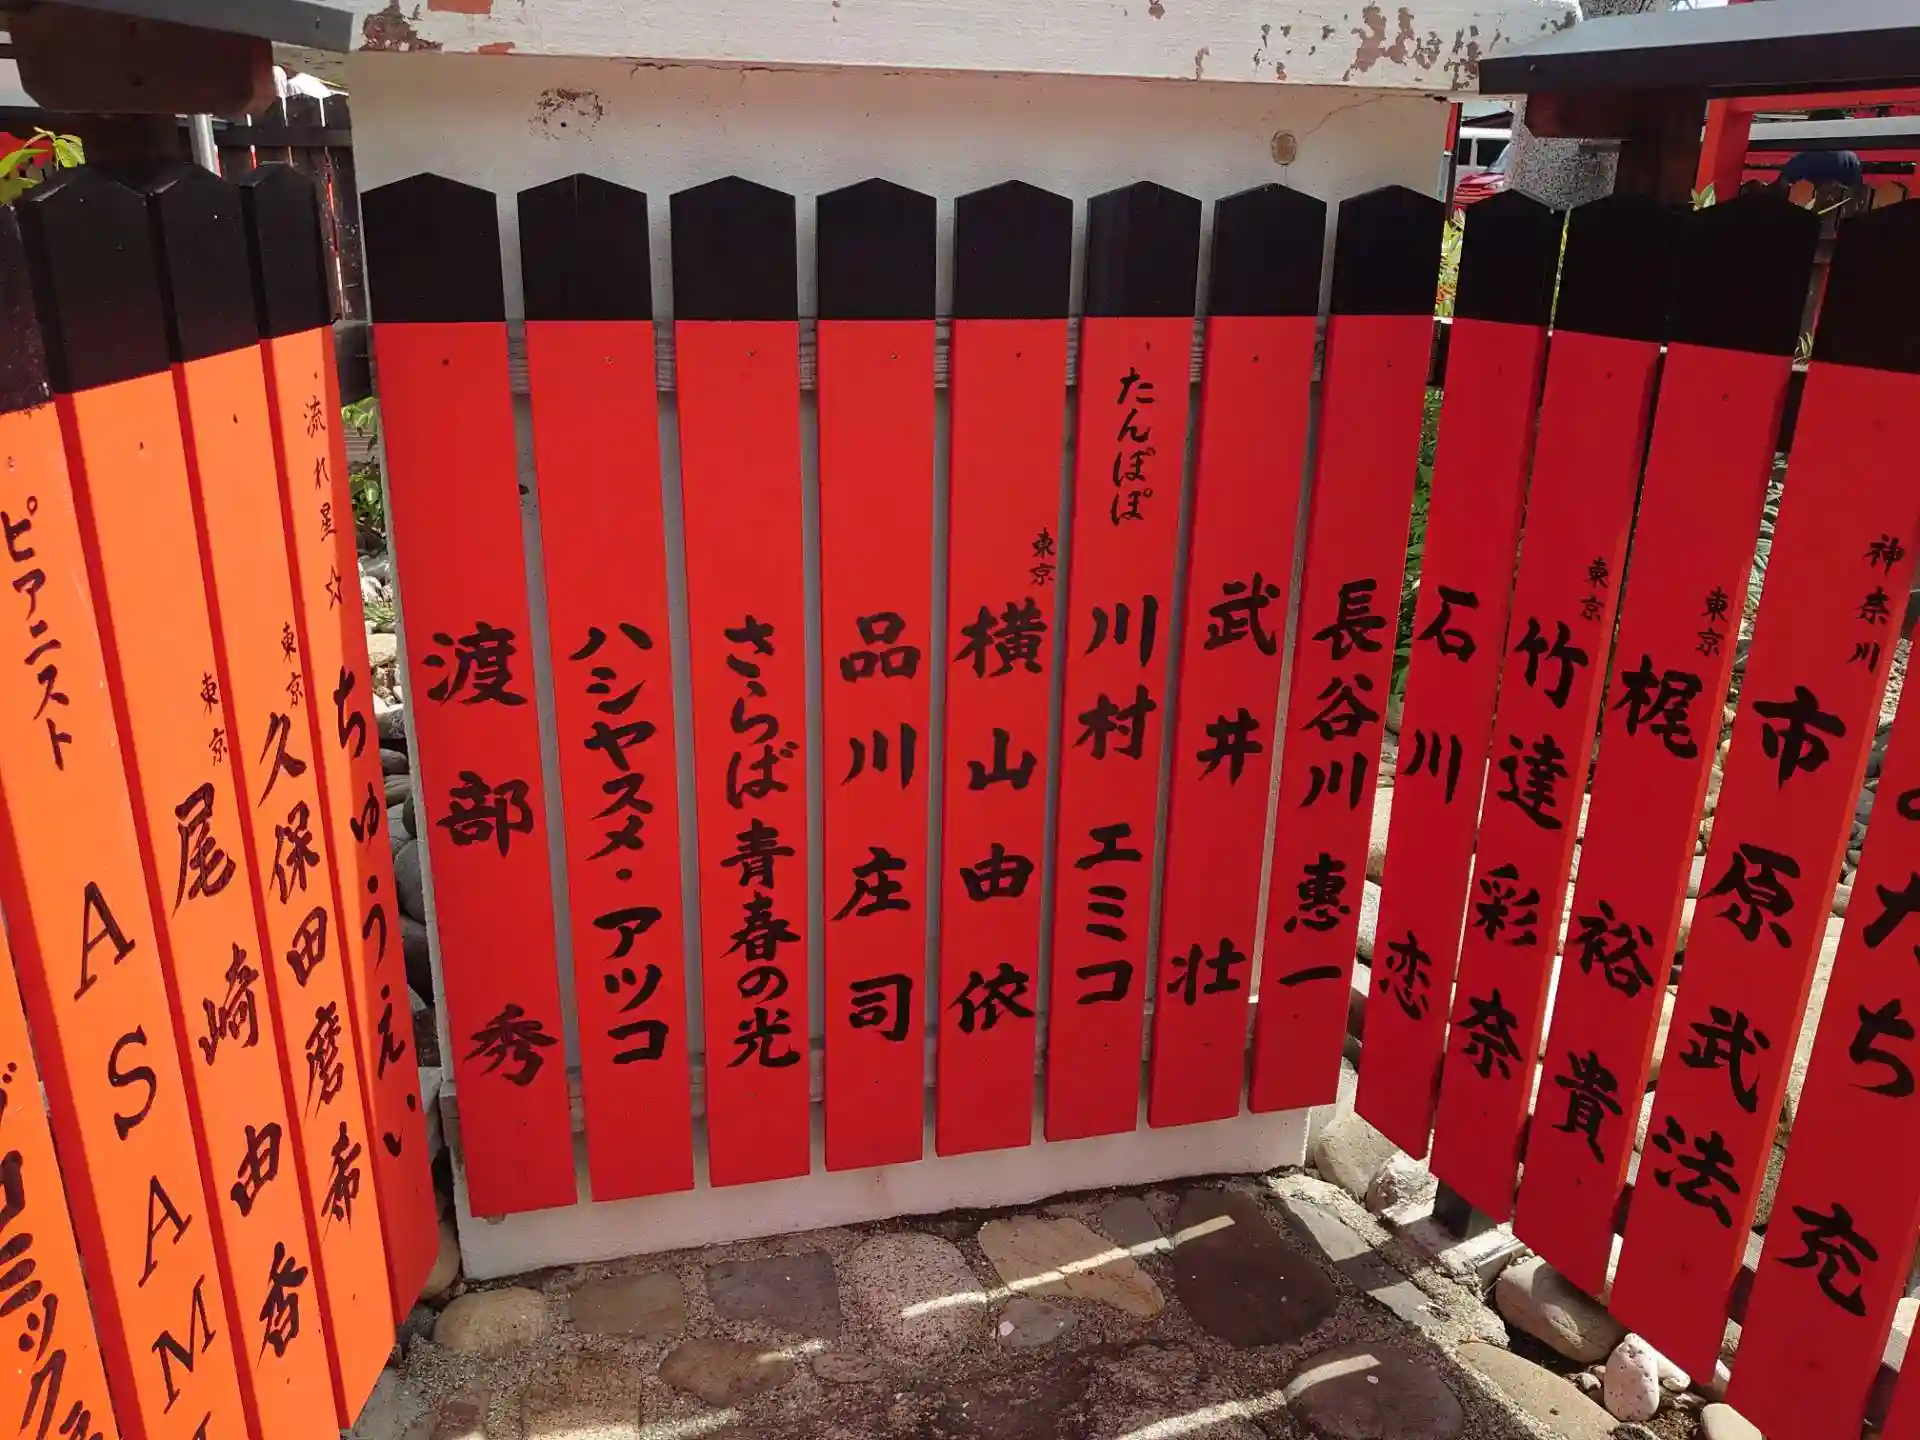 ピアニスト
ASAM
東京
尾崎由香
東京
久保田磨希
流れ星☆
ちゅうえい
渡部秀
ハシヤスメ・アツコ
さらば青春の光
品川庄司
東京
横山由依
たんぽぽ
川村エミコ
武井壮
長谷川惠一
石川恋
東京
竹達彩奈
東京
梶裕貴
市原武法
神奈川
たち充